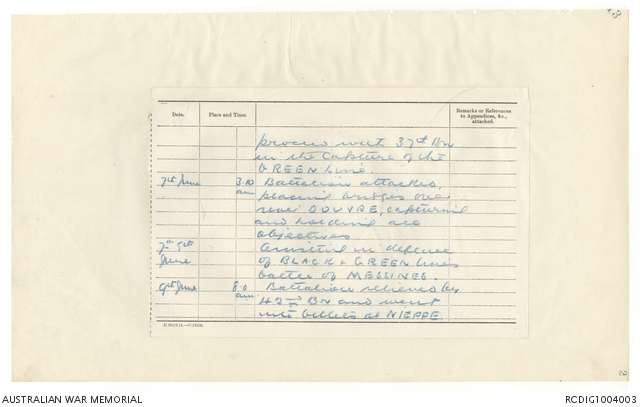 Date. Place and Time. Remarks or References to Appendices, &c., attached.
process with 37th Bn
in the Capture of the
GREEN Line.
7th June 3.10 am Battalion attacked,
placing bridges over
river DOUVRE, capturing
and holding all
objectives
7th 9th June Assisted in defence
of BLACK & GREEN lines
battle of MESSINES.
9th June 8.0 am Battalion relieved by
42nd BN and went
into billets at NIEPPE.
AUSTRALIAN WAR MEMORIAL
RCDIG1004003